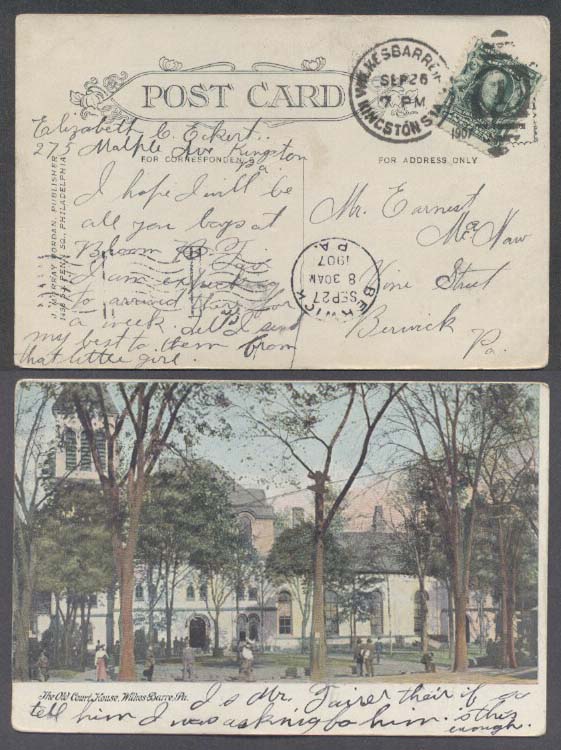 POST CARD
WILKESBARRE
SEP 26
7 PM
KINGSTON STA
1907
Elizabeth C. Eckert.
275 Maple Ave Kingston
Pa.
FOR CORRESPONDENCE
FOR ADDRESS ONLY
J. MURRAY JORDAN, PUBLISHER
1438 So. PENN SQ., PHILADELPHIA
I hope I will be
all you boys at
Bloom
I am expecting
to arrived there for
a week. I send
my best to them from
that little girl.
BERWICK
SEP 27
8 30 AM
1907
PA.
Mr. Earnest
Vine Street
Berwick
Pa.
The Old Court House, Wilkes-Barre, Pa.
Is Mr. Fairer their if so
tell him I was asknig fo him. is this
enough.